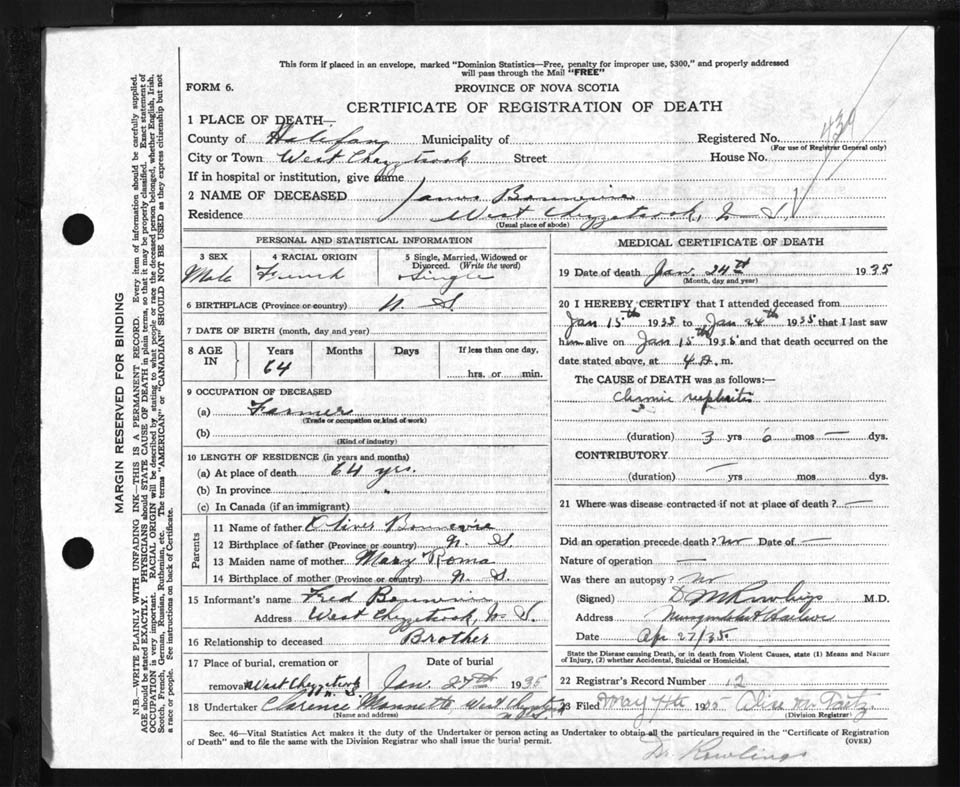 This form if placed in an envelope, marked "Dominion Statistics—Free, penalty for improper use, $300," and properly addressed
will pass through the Mail "FREE"
FORM 6. PROVINCE OF NOVA SCOTIA
CERTIFICATE OF REGISTRATION OF DEATH
1 PLACE OF DEATH—
County of Halifax Municipality of Registered No. 439
(For use of Registrar General only)
City or Town West Chezzetcook Street House No.
If in hospital or institution, give name
2 NAME OF DECEASED James
Residence West Chezzetcook, N S
(Usual place of abode)
PERSONAL AND STATISTICAL INFORMATION
3 SEX 4 RACIAL ORIGIN 5 Single, Married, Widowed or
Divorced. (Write the word)
Male French Single
6 BIRTHPLACE (Province or country) N. S.
7 DATE OF BIRTH (month, day and year)
8 AGE IN Years Months Days If less than one day,
64 hrs. or min.
9 OCCUPATION OF DECEASED
(a) Farmer
(Trade or occupation or kind of work)
(b)
(Kind of industry)
10 LENGTH OF RESIDENCE (in years and months)
(a) At place of death 64 yrs.
(b) In province
(c) In Canada (if an immigrant)
Parents
11 Name of father Oliver
12 Birthplace of father (Province or country) N. S.
13 Maiden name of mother Mary Roma
14 Birthplace of mother (Province or country) N. S.
15 Informant's name Fred
Address West Chezzetcook, N. S.
16 Relationship to deceased Brother
17 Place of burial, cremation or Date of burial
removal West Chezzetcook N. S. Jan. 24th 1935
18 Undertaker Clarence Mannette, West Chezzetcook
(Name and address)
MEDICAL CERTIFICATE OF DEATH
19 Date of death Jan. 24th 1935
(Month, day and year)
20 I HEREBY CERTIFY that I attended deceased from
Jan 15th 1935 to Jan 24th 1935 that I last saw
him alive on Jan 15th 1935 and that death occurred on the
date stated above, at 4 m.
The CAUSE of DEATH was as follows:—
Chronic nephritis
(duration) 3 yrs 0 mos — dys.
CONTRIBUTORY
(duration) — yrs mos dys.
21 Where was disease contracted if not at place of death? —
Did an operation precede death? no Date of —
Nature of operation —
Was there an autopsy? no
(Signed) D M Rowlings M.D.
Address Musquodoboit Harbour
Date Apr 27/35
State the Disease causing Death, or in death from Violent Causes, state (1) Means and Nature
of Injury, (2) whether Accidental, Suicidal or Homicidal.
22 Registrar's Record Number 12
23 Filed May 4th 1935
(Division Registrar)
Sec. 46—Vital Statistics Act makes it the duty of the Undertaker or person acting as Undertaker to obtain all the particulars required in the "Certificate of Registration
of Death" and to file the same with the Division Registrar who shall issue the burial permit. (OVER)
Dr Rowlings
MARGIN RESERVED FOR BINDING
N.B.—WRITE PLAINLY WITH UNFADING INK—THIS IS A PERMANENT RECORD. Every item of information should be carefully supplied.
AGE should be stated EXACTLY. PHYSICIANS should STATE CAUSE OF DEATH in plain terms, so that it may be properly classified. Exact statement of
OCCUPATION is very important. RACIAL ORIGIN will be described by stating to what people or race the deceased person belonged, whether English, Irish,
Scotch, French, German, Russian, Ruthenian, etc. The terms "AMERICAN" or "CANADIAN" SHOULD NOT BE USED as they express citizenship but not
a race or people. See instructions on back of Certificate.